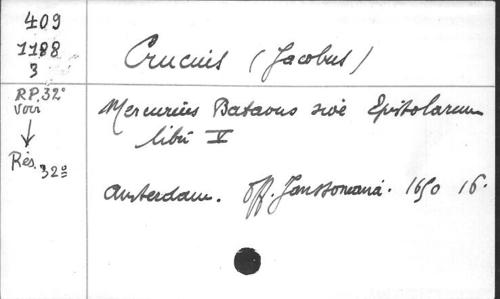 409
1188
3
Crucius (Jacobus)
RP. 32°
voir
Mercurius Batavus sive Epistolarum
libri V
Rés. 32°
Amsterdam. Off. Janssoniana. 1650 16.